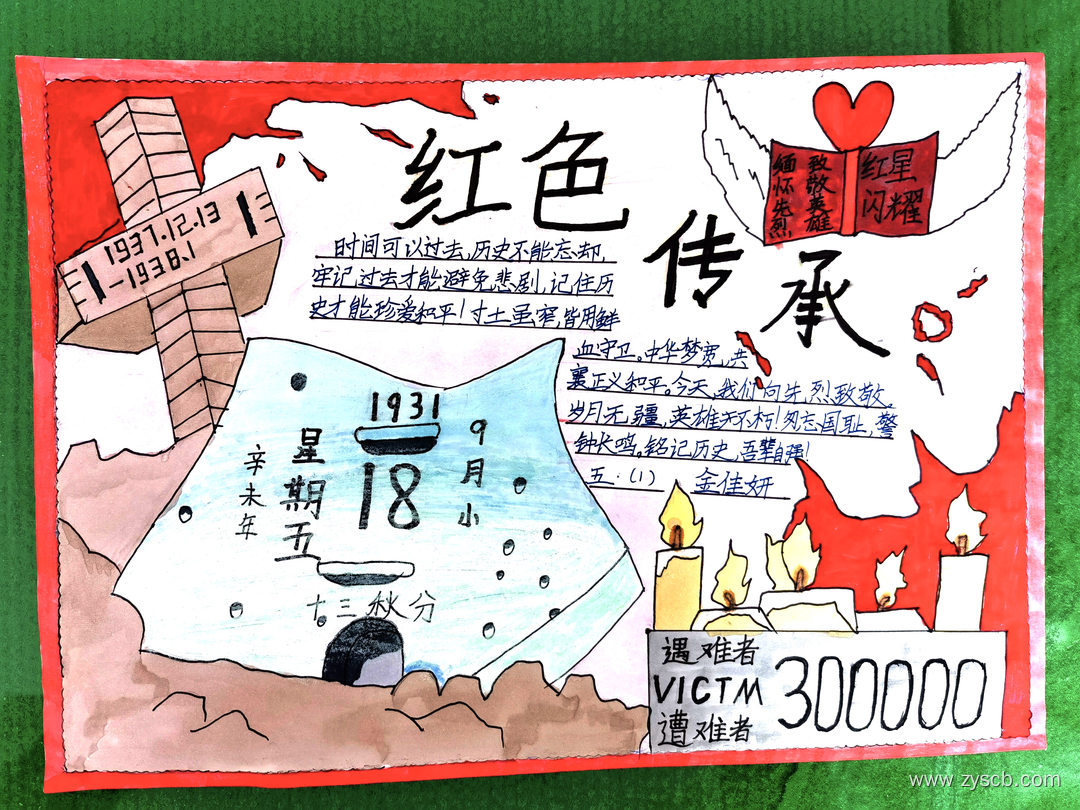 红色
传承
缅怀先烈
致敬英雄
红星
闪耀
1937.12.13
-1938.1
时间可以过去,历史不能忘却,
牢记过去才能避免悲剧,记住历
史才能珍爱和平!寸土虽窄,皆用鲜
血守卫。中华梦宽,共
襄正义和平。今天,我们向先烈致敬。
岁月无疆,英雄不朽!勿忘国耻,警
钟长鸣。铭记历史,吾辈自强!
五.(1) 金佳妍
1931
9月小
18
星期五
辛未年
十三秋分
遇难者
VICTM
遭难者
300000
www.zyscb.com